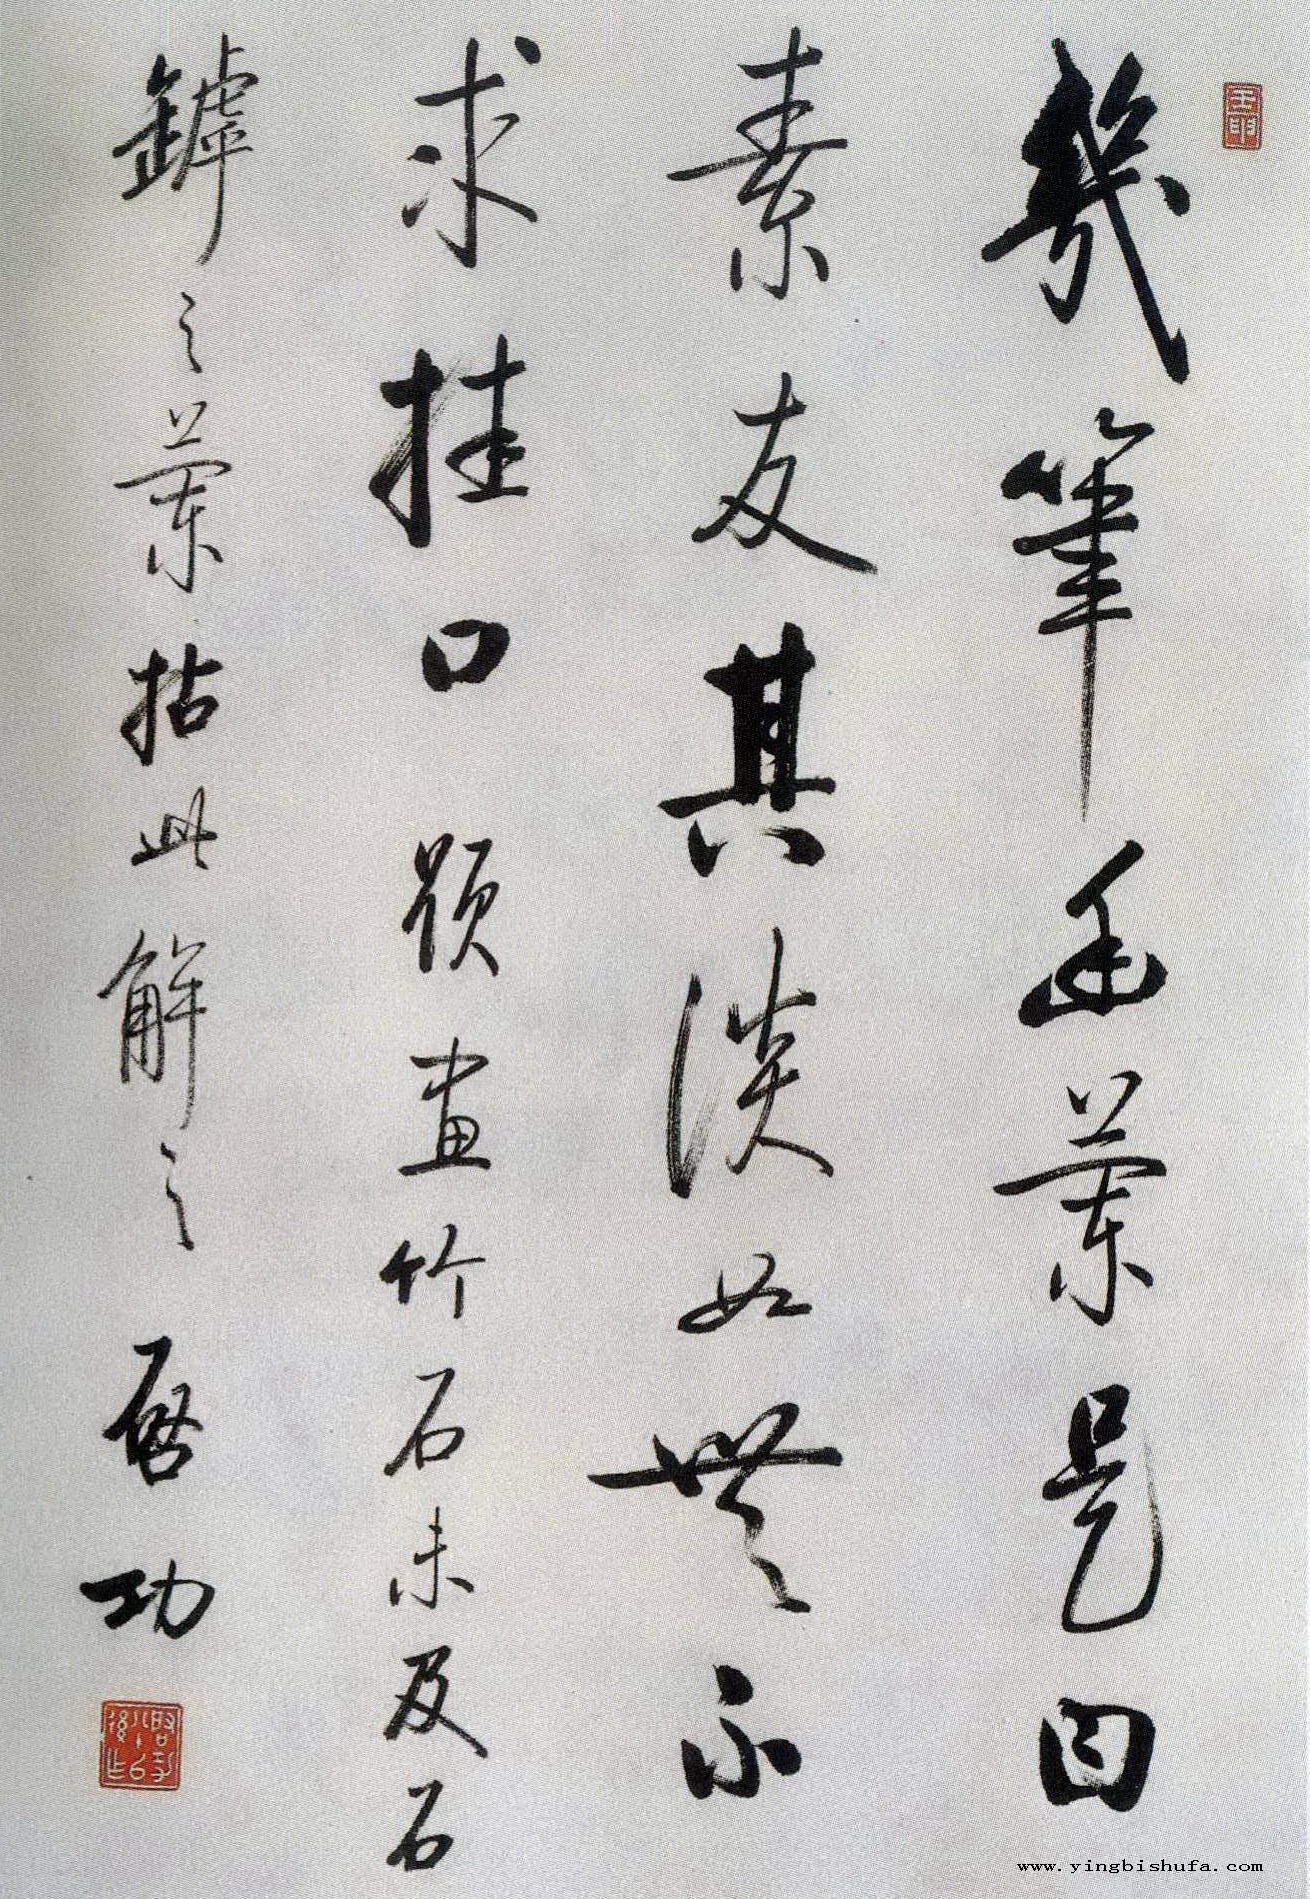 幾筆幽蘭是曰
素友其淡如無不
求挂口 題畫竹石未及石
罅之蘭拈此解之 啓功
www.yingbishufa.com